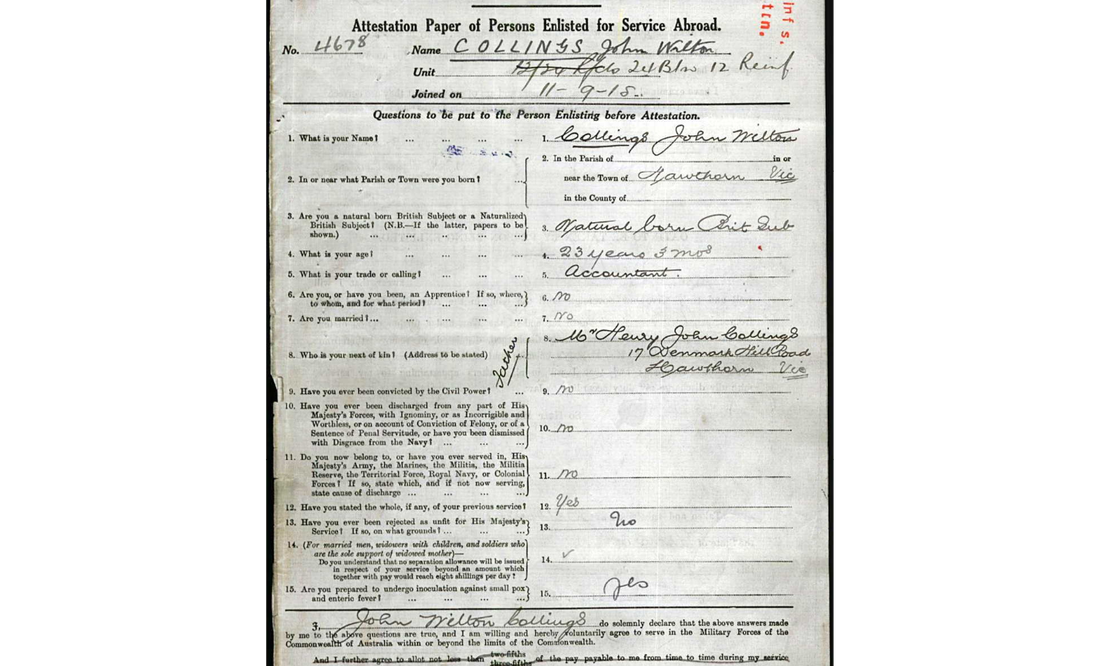 inf s.
ttn.
Attestation Paper of Persons Enlisted for Service Abroad.
No. 4678 Name COLLINGS John Wilton
Unit 12/24 Rfcts 24 Btn 12 Reinf
Joined on 11-9-15.
Questions to be put to the Person Enlisting before Attestation.
1. What is your Name? ... ... ... ... 1. Collings John Wilton
2. In or near what Parish or Town were you born? ... 2. In the Parish of in or
near the Town of Hawthorn Vic
in the County of
3. Are you a natural born British Subject or a Naturalized
British Subject? (N.B.—If the latter, papers to be
shown.) ... ... ... ... 3. Natural born Brit Sub
4. What is your age? ... ... ... ... 4. 23 years 3 mos
5. What is your trade or calling? ... ... ... 5. Accountant.
6. Are you, or have you been, an Apprentice? If so, where,
to whom, and for what period? ... ... ... 6. no
7. Are you married? ... ... ... ... ... 7. No
8. Who is your next of kin? (Address to be stated) Father 8. Mr Henry John Collings
17 Denmark Hill Road
Hawthorn Vic
9. Have you ever been convicted by the Civil Power? ... 9. no
10. Have you ever been discharged from any part of His
Majesty's Forces, with Ignominy, or as Incorrigible and
Worthless, or on account of Conviction of Felony, or of a
Sentence of Penal Servitude, or have you been dismissed
with Disgrace from the Navy? ... ... ... 10. no
11. Do you now belong to, or have you ever served in, His
Majesty's Army, the Marines, the Militia, the Militia
Reserve, the Territorial Force, Royal Navy, or Colonial
Forces? If so, state which, and if not now serving,
state cause of discharge ... ... ... ... 11. no
12. Have you stated the whole, if any, of your previous service? 12. Yes
13. Have you ever been rejected as unfit for His Majesty's
Service? If so, on what grounds? ... ... ... 13. No
14. (For married men, widowers with children, and soldiers who
are the sole support of widowed mother)—
Do you understand that no separation allowance will be issued
in respect of your service beyond an amount which
together with pay would reach eight shillings per day? 14. ✓
15. Are you prepared to undergo inoculation against small pox
and enteric fever? ... ... ... ... 15. yes
3, John Wilton Collings do solemnly declare that the above answers made
by me to the above questions are true, and I am willing and hereby voluntarily agree to serve in the Military Forces of the
Commonwealth of Australia within or beyond the limits of the Commonwealth.
And I further agree to allot not less than two-fifths three-fifths of the pay payable to me from time to time during my service